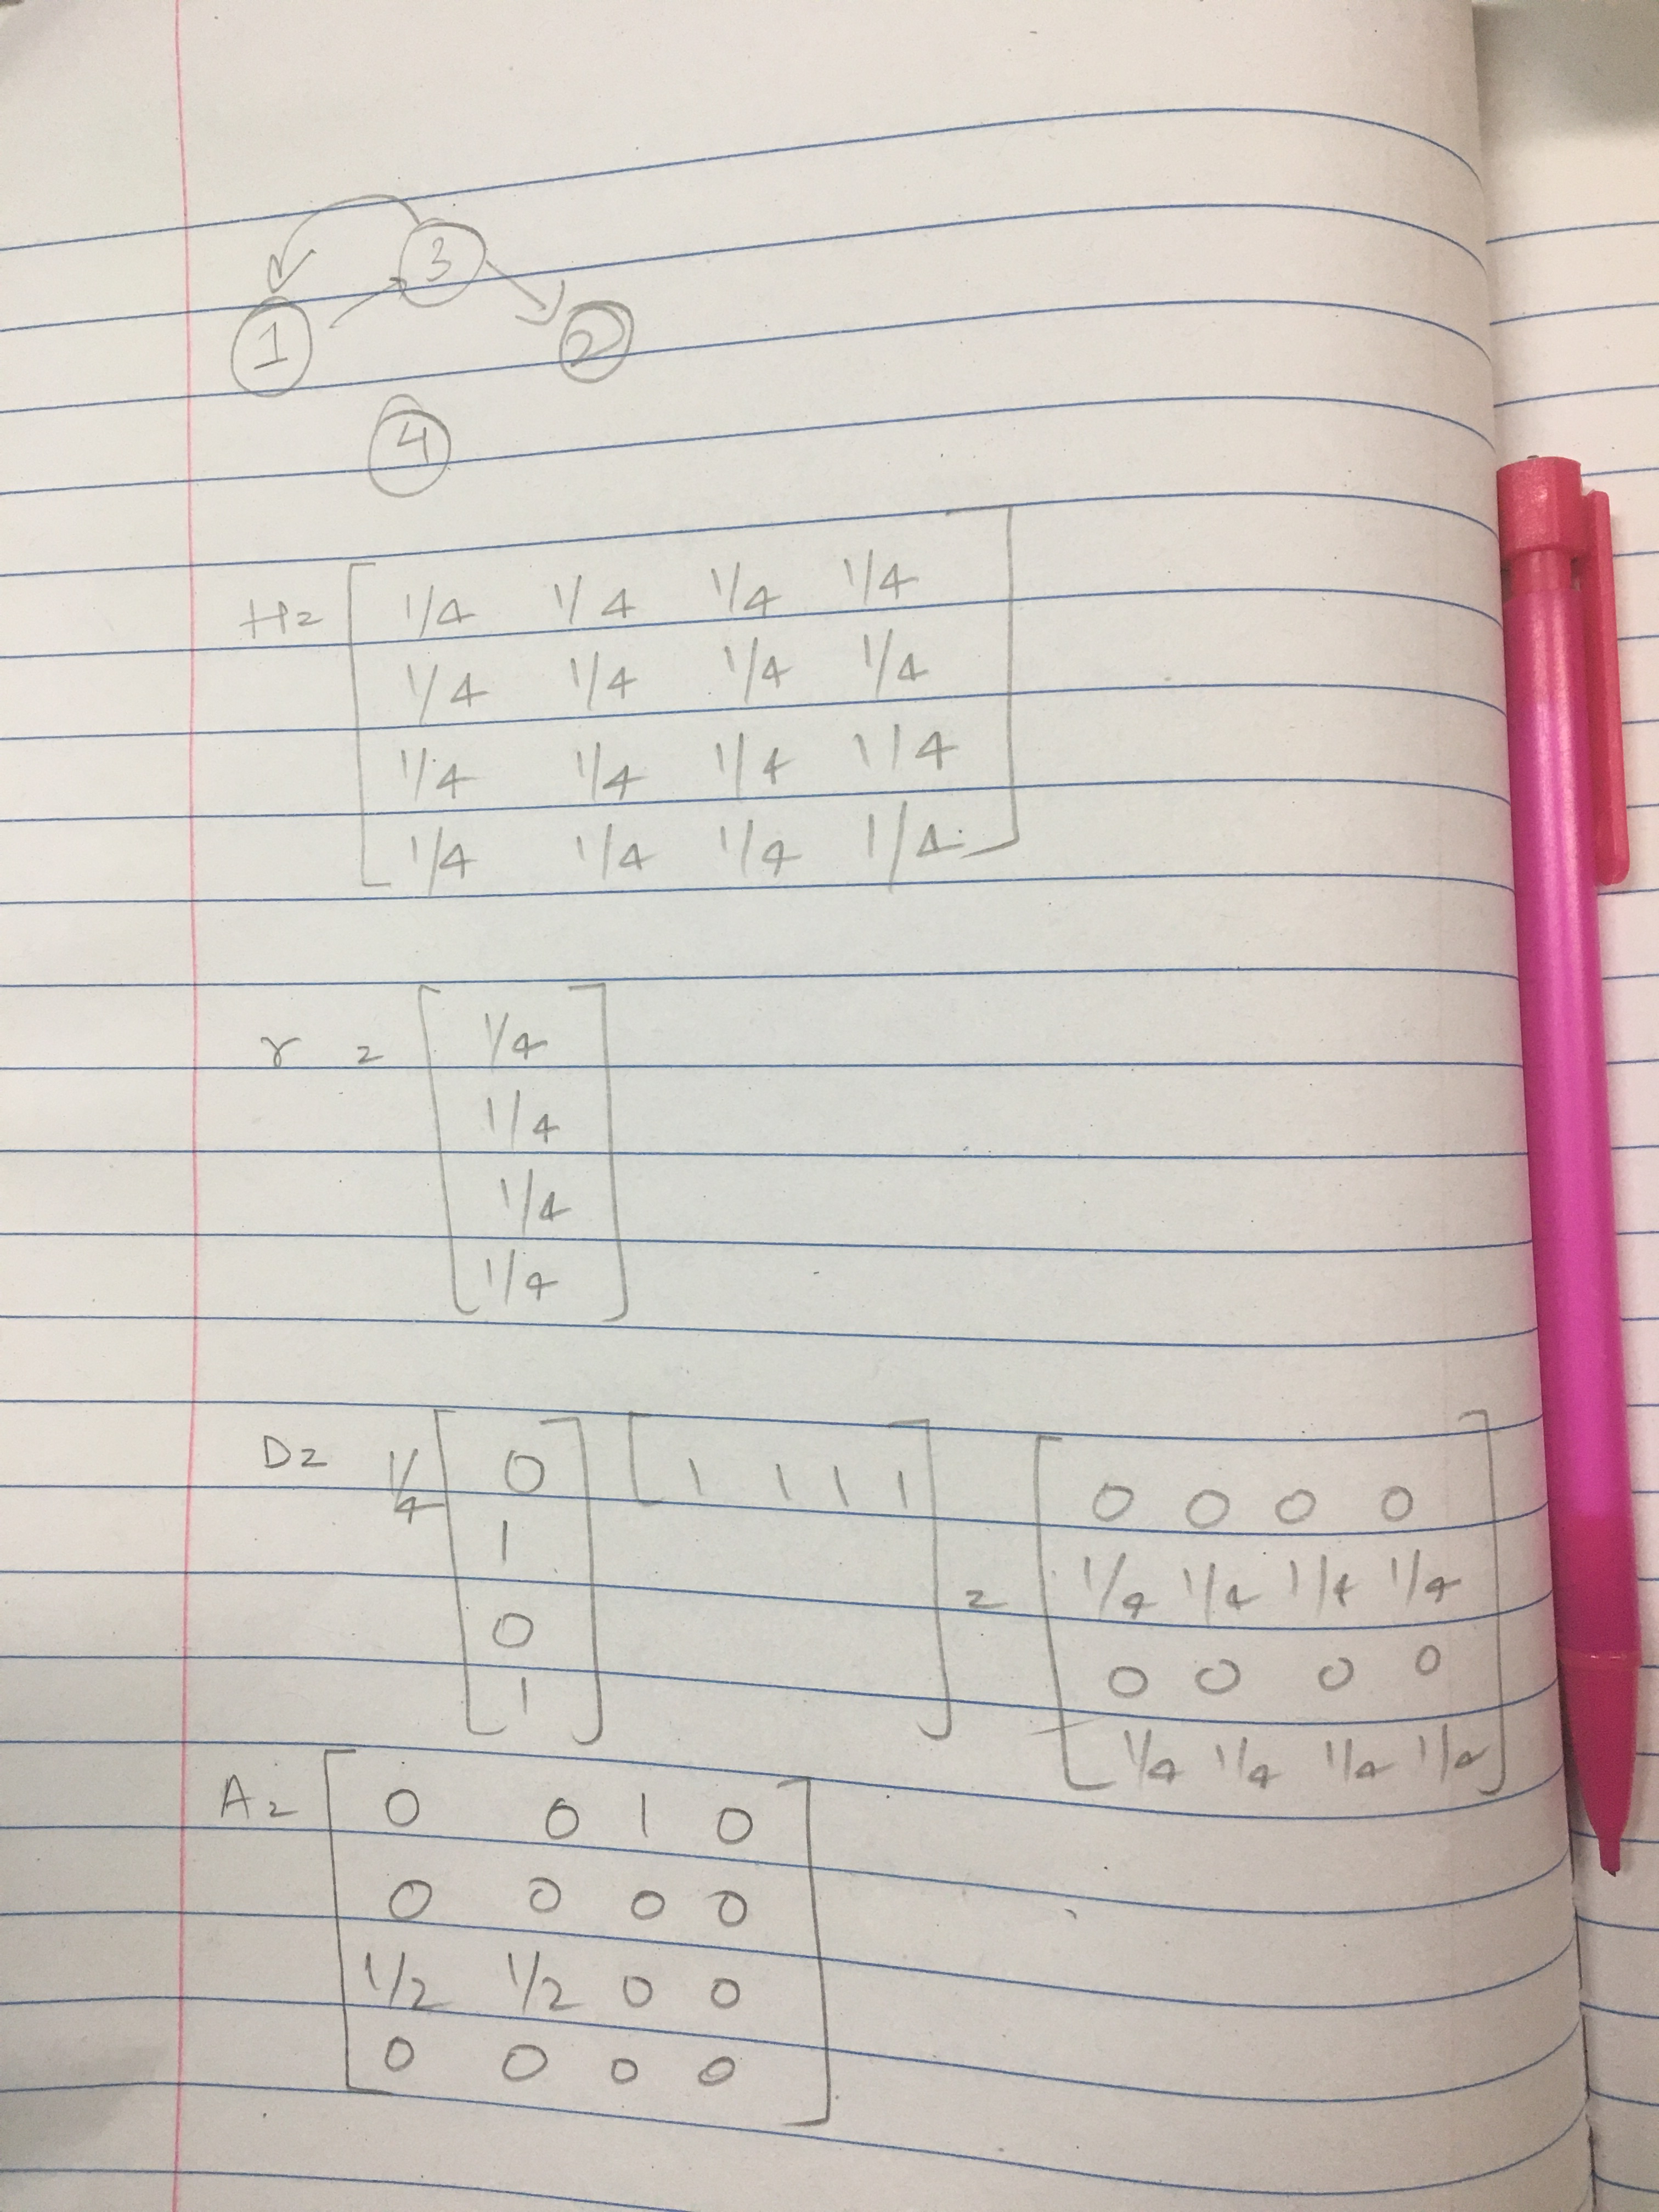 3
1
2
4
H = [ 1/4 1/4 1/4 1/4
1/4 1/4 1/4 1/4
1/4 1/4 1/4 1/4
1/4 1/4 1/4 1/4 ]
r = [ 1/4
1/4
1/4
1/4 ]
D = 1/4 [ 0 1 0 1 ] [ 1 1 1 1 ] = [ 0 0 0 0
1/4 1/4 1/4 1/4
0 0 0 0
1/4 1/4 1/4 1/4 ]
A = [ 0 0 1 0
0 0 0 0
1/2 1/2 0 0
0 0 0 0 ]